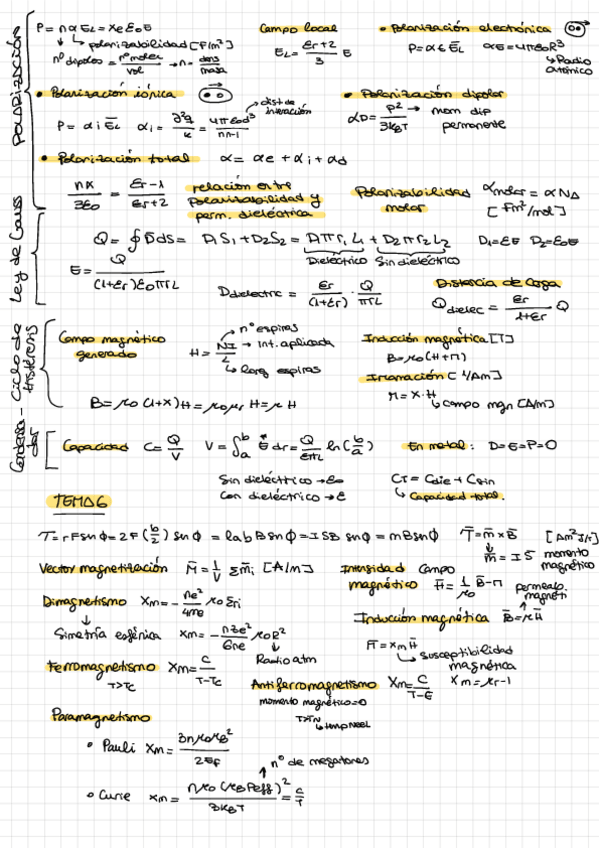 POLARIZACIÓN
P = nαEL = XeƐ0E
polarizabilidad [F/m²]
nº dipolos = nº molec / vol → n = dens / masa
Campo local
EL = (Ɛr+2)/3 E
• Polarización electrónica
P = αe ĒL   αe = 4πƐ0R³
Radio atómico
• Polarización iónica
P = αi ĒL   αi = q²/k = 4πƐ0d³/(n-1)
dist de interacción
• Polarización dipolar
αD = P²/3kBT → mom dip permanente
• Polarización total   α = αe + αi + αd
nα/3Ɛ0 = (Ɛr-1)/(Ɛr+2)
relación entre polarizabilidad y perm. dieléctrica
Polarizabilidad molar   αmolar = αNA
[Fm²/mol]
Ley de Gauss
Q = ∮D̄dS = D1S1 + D2S2 = D1πr1L1 + D2πr2L2   D1=ƐE   D2=Ɛ0E
Dieléctrico   Sin dieléctrico
E = Q/((1+Ɛr)Ɛ0πrL)
Ddielectric = Ɛr/(1+Ɛr) · Q/πrL
Distancia de Carga
Qdielec = Ɛr/(1+Ɛr) Q
Ciclo de histéresis
Campo magnético generado
H = NI/L
nº espiras
int. aplicada
long espiras
Inducción magnética [T]
B = μ0(H+M)
Imanación [A/m]
M = X·H
campo mgn [A/m]
B = μ0(1+X)H = μ0μrH = μH
Condensador
Capacidad   C = Q/V   V = ∫ₐᵇ E dr = Q/ƐπL ln(b/a)
En metal: D=E=P=0
Sin dieléctrico → Ɛ0
Con dieléctrico → Ɛ
CT = Cdie + Csin
Capacidad total.
TEMA 6
T = rFsenϕ = 2F(b/2) senϕ = IabBsenϕ = ISB senϕ = mBsenϕ   T̄ = m̄×B̄   [Am² J/T]
m̄ = IS̄   momento magnético
Vector magnetización   M̄ = 1/V Σm̄i [A/m]
Intensidad campo magnético   H̄ = 1/μ0 B̄-M
permeab. magnéti
Dimagnetismo   Xm = -ne²/4me μ0Σri
Inducción magnética   B̄=μH̄
Simetría esférica   Xm = -nze²/6me μ0R²
Radio atm
M̄ = XmH̄
susceptibilidad magnética
Xm = μr-1
Ferromagnetismo   Xm = C/(T-Tc)
T>Tc
Antiferromagnetismo   Xm = C/(T-θ)
momento magnético=0
T>TN
temp Neel
Paramagnetismo
• Pauli   Xm = 3nμ0μB²/2EF
nº de magetones
• Curie   Xm = nμ0(μBPeff)²/3kBT = C/T